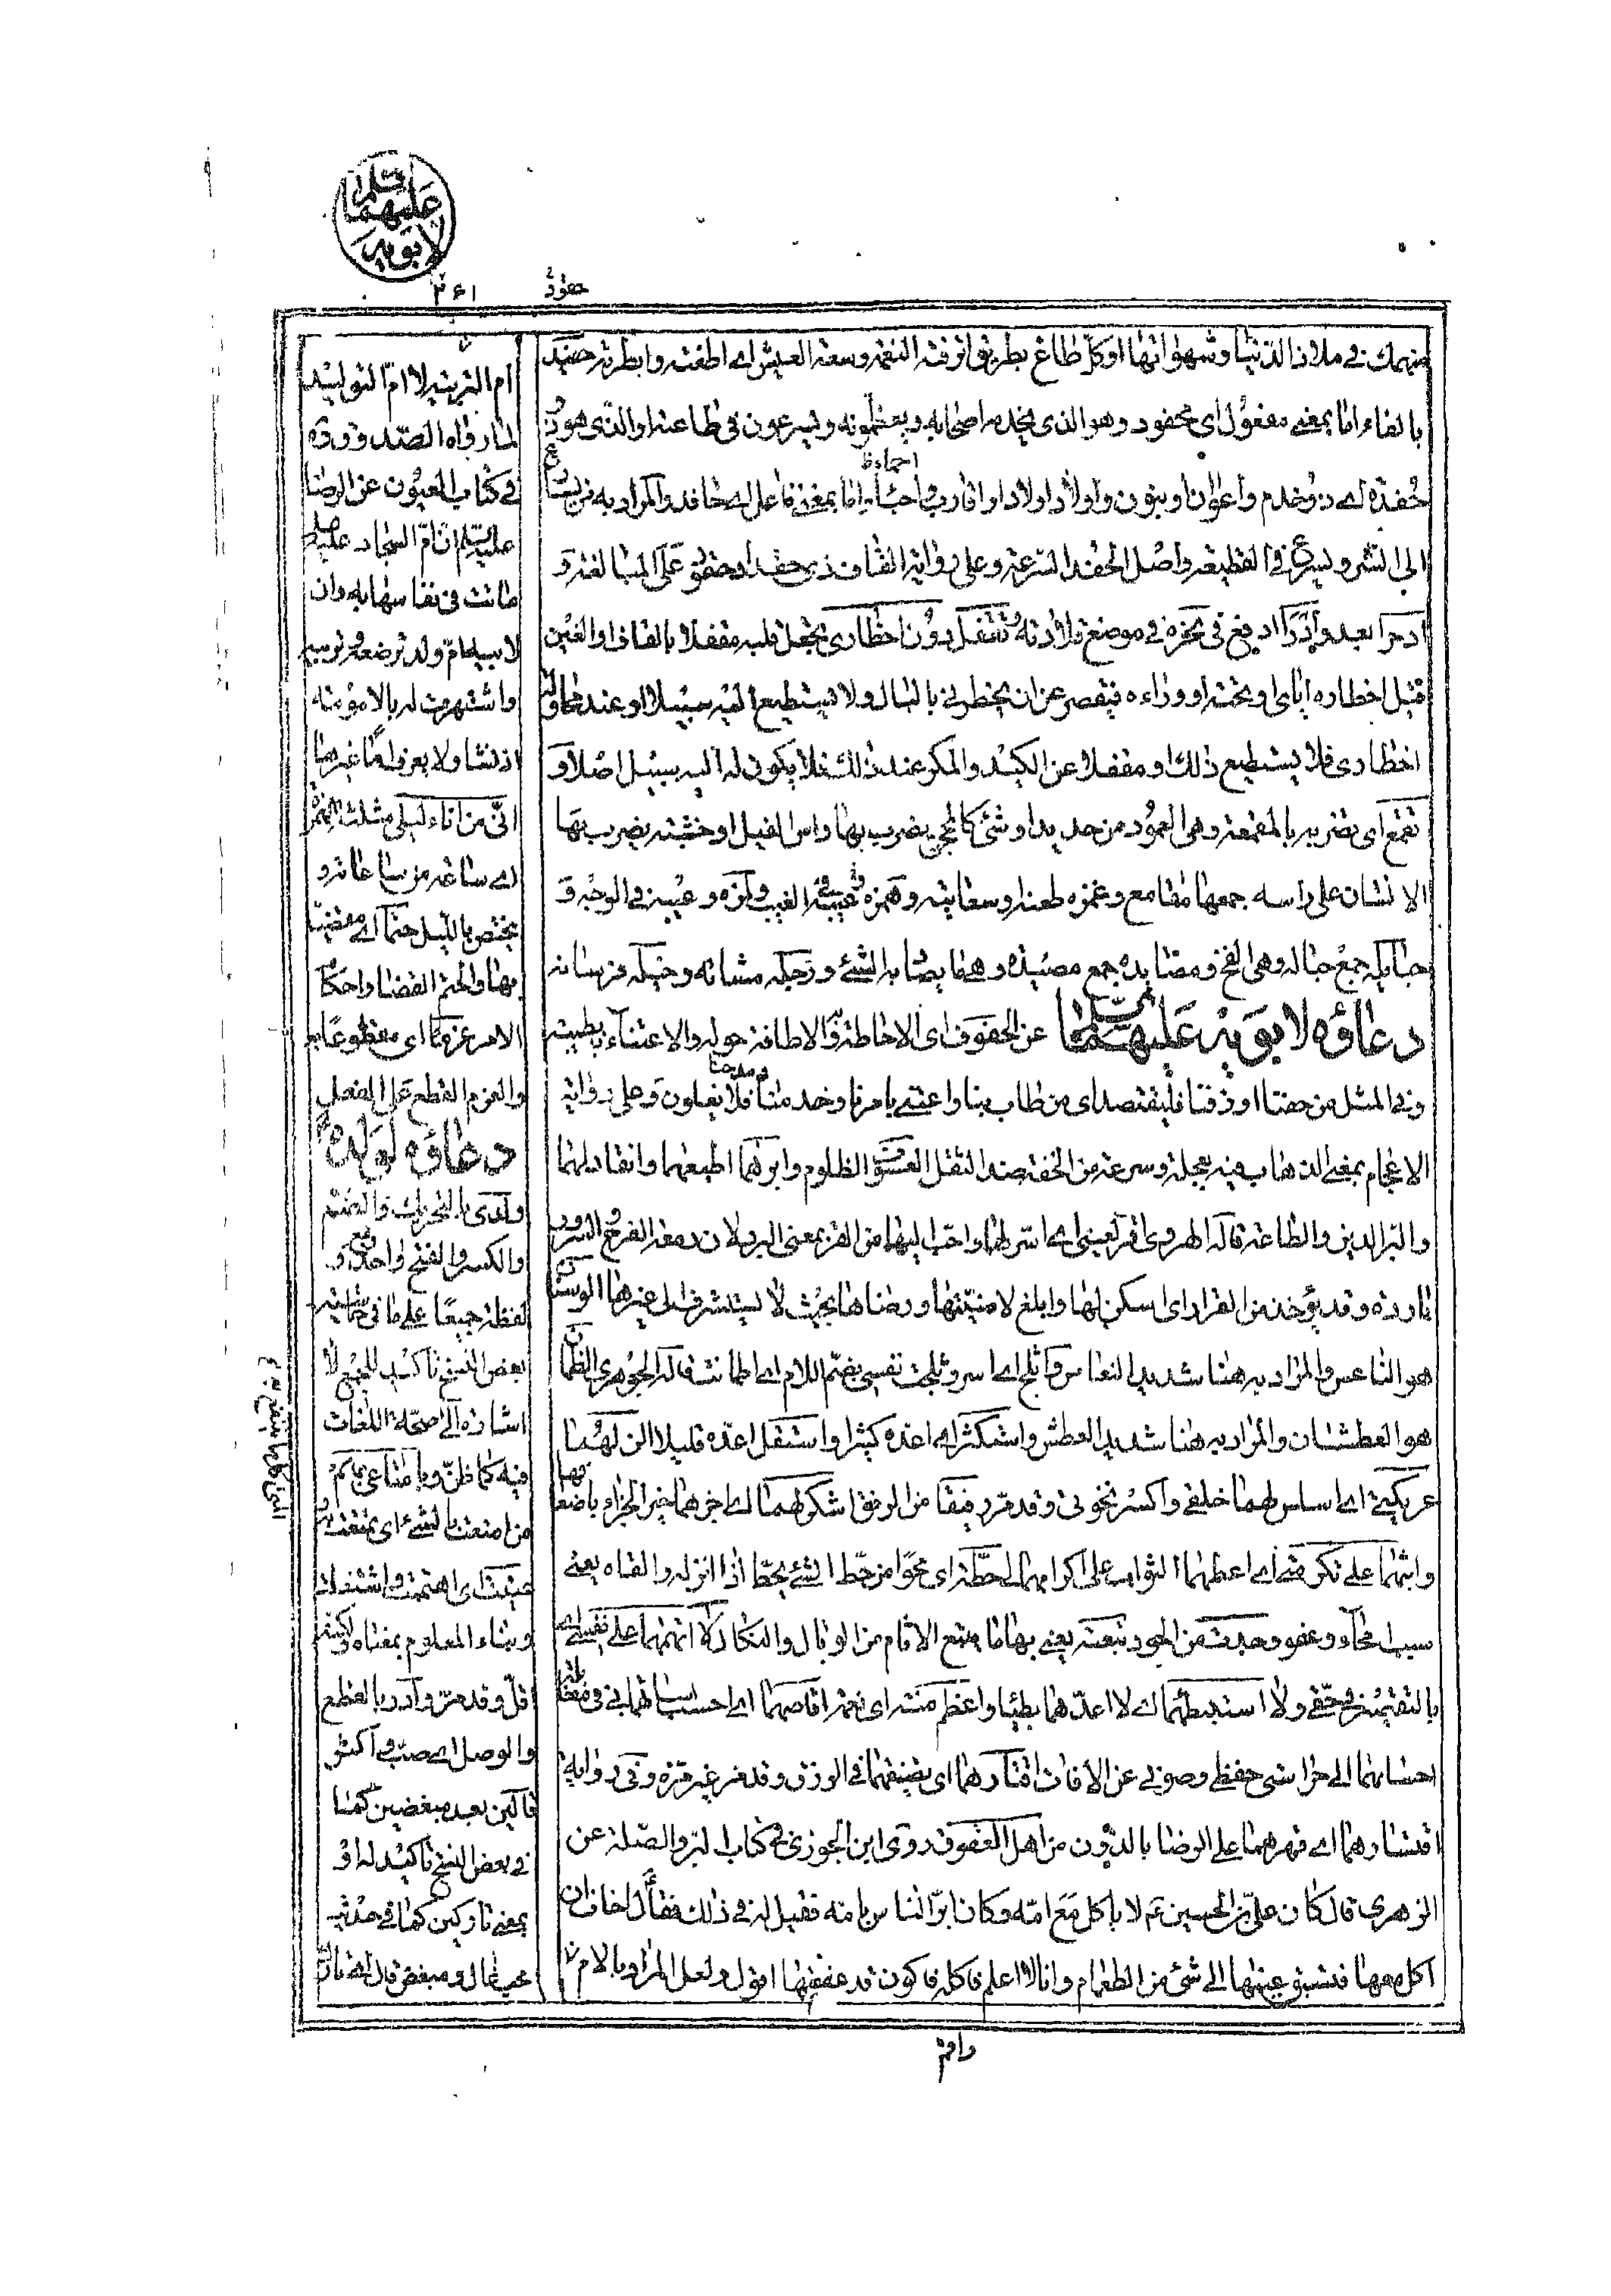 قلما
عليهما
لابويه
٣۶١
حفود
منهمك في ملاذ الدنيا وشهواتها او كل طاغ بطر يق اترفته النعمة وسعة العيش اي اطغته وابطرته حفيد
بالفاء اما بمعنى مفعول اي محفود وهو الذي يخدمه اصحابه ويعظمونه ويسرعون في طاعته او الذي هو ذو
حفدة اي ذو خدم واعوان او بنون واولاد اولاد او اقارب واحباء اما بمعنى فاعل اي حافد والمراد به من
الى الشر ويسرع في القطيعة واصل الحفد السرعة وعلى رواية القاف ذي حقد او حقود على المبالغة و
ادحرا بعد وادرأ ادفع في نحره في موضع قلادته دون اخطاري تجعل قلبه مقفلا بالقاف او الغين
قبل اخطاره اياي او تحته او وراءه فيقصر عن ان يخطرني بالبال ولا يستطيع اليه سبيلا او عند
اخطاري فلا يستطيع ذلك او مقفلا عن الكيد والمكر عند ذلك فلا يكون له اليه سبيل اصلا و
تقمع اي تضربه بالمقمعة وهي العمود من حديد او شئ كالمحجن يضرب بها راس الفيل او خشبة يضرب بها
الانسان على راسه جمعها مقامع وغمزه طعنه او سعايته وهمزه غيبته الغيب ولمزه وعيبه في الوجه و
حبايله جمع حباله وهي الفخ ومصايده جمع مصيدة وهي ما يصاد به الشئ ورجله مشاته وخيله فرسانه
دعاؤه لابويه عليهما عن الحفوف اي الاحاطة والاطافة حوله والاعتناء
وفي المثل من حفنا او رفنا فليقتصد اي من طاف بنا واعتنى بامرنا وخدمنا فلا يغلون وعلى رواية
الاعجام بمعنى الذهاب بعجلة وسرعة من الخفة ضد الثقل العسوف الظلوم وابرهما اطيعهما وانقاد لهما
والبر الدين والطاعة قاله الهروي اقر لعيني اي اسر لهما واحب اليهما من القر بمعنى البرد لان دمعة الفرح والسرور
باردة وقد يؤخذ من القرار اي اسكن لها وابلغ لامنيتها ورضاها بحيث لا يستشرف الى غيرها الوسنان
هو الناعس والمراد به هنا شديد النعاس واثلج اي اسر وثلجت نفسي بضم اللام اي اطمانت قاله الجوهري الظمان
هو العطشان والمراد به هنا شديد العطش واستكثر اي اعده كثيرا واستقل اعده قليلا الن لهما
عريكتي اي اساس لهما خلقي واكسر نخوتي وقد مر رفيقا من الرفق اشكر لهما اي اجزهما خير الجزاء
واثبهما على تكرمتي اي اعطهما الثواب على اكرامهما لي حطة اي محوا من حط الشئ يحط اذا انزله والقاه يعني
سببا لمحاء وعفو وجدت من الجود تبعته يعني بها ما يتبع الاثام من الوبال والنكال لا اتهمهما على نفسي اي
بالتقصير في حقي ولا استبطئهما اي لا اعدهما بطيئا واعظم منة اي نعمة اقاصهما اي احسب
احسانهما الي حراستي حفظي وصوني عن الافات اقتارهما اي تضييقهما في الرزق وقد مر غير مرة وفي رواية
اقتسارهما اي قهرهما على الرضا بالدون من اهل العقوق روى ابن الجوزي في كتاب البر والصلة عن
الزهري قال كان علي بن الحسين ع لا ياكل مع امه وكان ابر الناس بامه فقيل له في ذلك فقال اخاف ان
اكل معها فتسبق عينها الى شئ من الطعام وانا لا اعلم فاكله فاكون قد عققتها اقول ولعل المراد بالام
ام التربية لا ام التوليد
لما رواه الصدوق ره
في كتاب العيون عن الرضا
عليه السلم ان ام السجاد عليه
ماتت في نفاسها به وان
لابيه ام ولد ترضعه وتربيه
واشتهرت له بالامومة
اذ نشا ولا يعرف اما غيرها
انى من اناء ليلي مثلثة الهمزة
اي ساعة من ساعاته و
يختص بالليل حتما اي مقضيا
بها والحتم القضا واحكام
الامر عزما اي مقطوعا به
والعزم القطع على الفعل
دعاؤه لولده
ولدي بالتحريك والضم
والكسر والفتح واحد و
لفظة جميعا على ما في حاشية
بعض النسخ تاكيد للجمع لا
اشارة الى صحة اللغات
فيه كما ظن وبامتاعي بهم
من امتعت بالشئ اي تمتعت به
عنيت اي اهتممت واشتغلت
وبناء المعلوم بمعناه ولكنه
اقل وقد مر وادرر بالقطع
والوصل اي صب و اكثر
قالين بعد مبغضين كما
في بعض النسخ تاكيد له او
بمعنى تاركين كما في حديث
محب غال ومبغض قال
دافتر